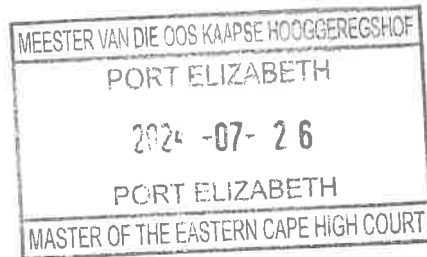 MEESTER VAN DIE OOS KAAPSE HOOGGEREGSHOF
PORT ELIZABETH
2024 -07- 26
PORT ELIZABETH
MASTER OF THE EASTERN CAPE HIGH COURT